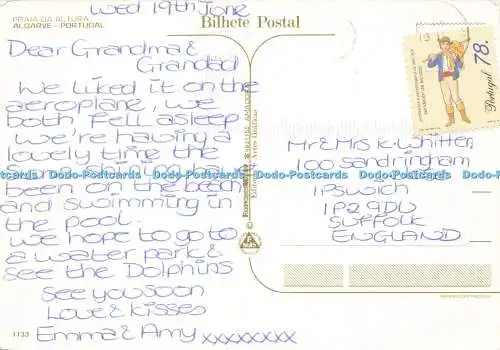 Wed 19th June
PRAIA DA ALTURA
ALGARVE - PORTUGAL
Bilhete Postal
Dear Grandma &
Grandad
We liked it on the
aeroplane, we
both fell asleep
we're having a
lovely time the
been on the beach
and swimming in
the pool.
we hope to go to
a water park &
see the Dolphins
see you soon
Love & kisses
Emma & Amy xxxxxxxx
1133
78.
Portugal
Mr & Mrs K. Whitten
100 Sandringham
IPSWICH
IP2 9DU
SUFFOLK
ENGLAND
Dodo-Postcards Dodo-Postcards Dodo-Postcards Dodo-Postcards Dodo-Postcards